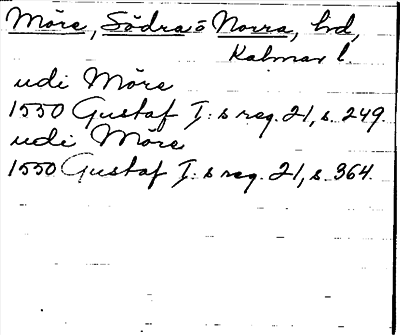 Möre, Södra o Norra, hd,
Kalmar l.
udi Möre
1550 Gustaf I:s reg. 21, s. 249.
udi Möre
1550 Gustaf I:s reg. 21, s. 364.